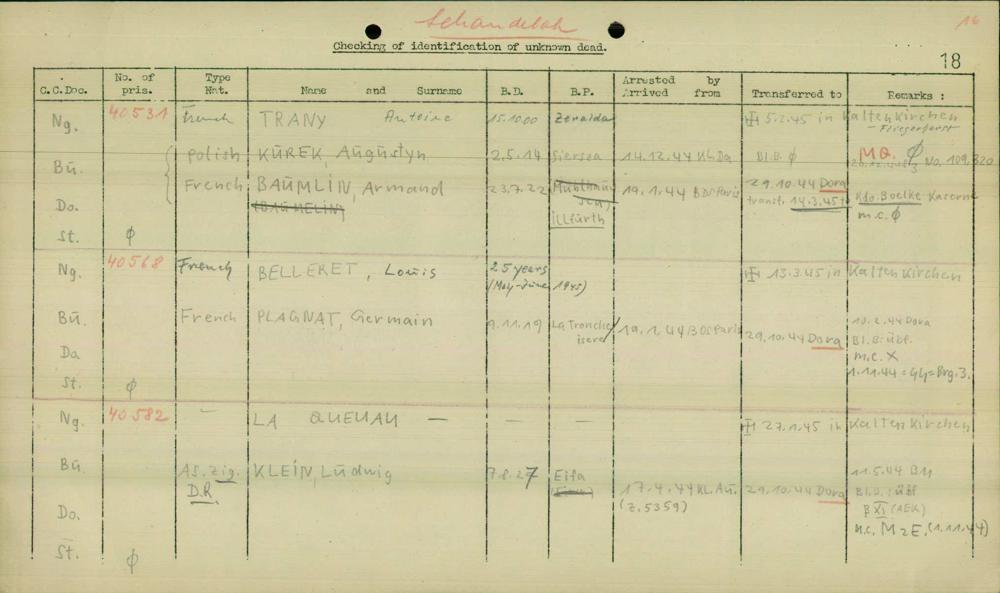 Schandelah
16
Checking of identification of unknown dead.
18
C.C.Doc. No. of pris. Type Nat. Name and Surname B.D. B.P. Arrested by Arrived from Transferred to Remarks :
Ng. 40531 French TRANY Antoine 15.10.00 Zeralda 5.2.45 in Kaltenkirchen
- Fliegerhorst
Bu. polish KUREK, Augustyn 2.5.14 Siersza 14.12.44 KL.Da Bl.B. ϕ M.Q. ϕ
No. 109,320
French BAUMLIN, Armand 23.7.22 Mühlhausen, 19.1.44 BDS Paris 29.10.44 Dora
Do. (BAUMELIN) illfürth transf. 14.3.45 to Kdo. Boelke Kaserne
m.c. ϕ
St. ϕ
Ng. 40568 French BELLERET, Louis 25 years 13.3.45 in Kaltenkirchen
(May-June 1945)
Bu. French PLAGNAT, Germain 9.11.19 La Tronche/ 19.1.44 BDS Paris 29.10.44 Dora 10.2.44 Dora
isere Bl.B. übf.
Do m.c. X
St. ϕ 1.11.44 = 
Ng. 40582 - LA QUEUAU - - - 27.1.45 in Kaltenkirchen
Bu. AS. zig. KLEIN, Ludwig 7.8.27 Eifa 17.4.44 KL.Au. 29.10.44 Dora 11.5.44 BU
D.R. (Z.5359) Bl.B.: übf
Do. β XI (AEK)
m.c. M2E. (1.11.44)
St. ϕ